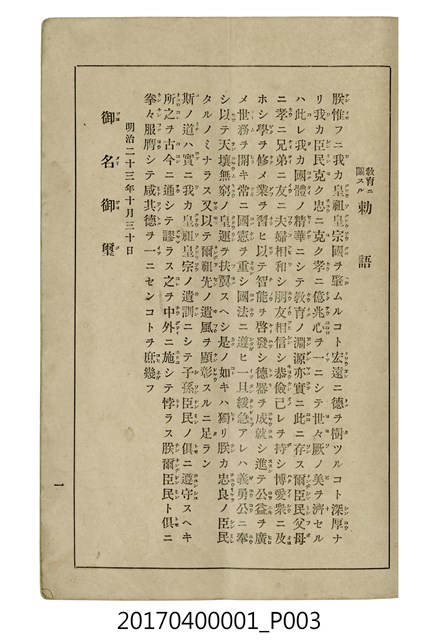 教育ニ關スル 勅語
朕惟フニ我カ皇祖皇宗國ヲ肇ムルコト宏遠ニ德ヲ樹ツルコト深厚ナ
リ我カ臣民克ク忠ニ克ク孝ニ億兆心ヲ一ニシテ世々厥ノ美ヲ濟セル
ハ此レ我カ國體ノ精華ニシテ敎育ノ淵源亦實ニ此ニ存ス爾臣民父母
ニ孝ニ兄弟ニ友ニ夫婦相和シ朋友相信シ恭儉己レヲ持シ博愛衆ニ及
ホシ學ヲ修メ業ヲ習ヒ以テ智能ヲ啓發シ德器ヲ成就シ進テ公益ヲ廣
メ世務ヲ開キ常ニ國憲ヲ重シ國法ニ遵ヒ一旦緩急アレハ義勇公ニ奉
シ以テ天壤無窮ノ皇運ヲ扶翼スヘシ是ノ如キハ獨リ朕カ忠良ノ臣民
タルノミナラス又以テ爾祖先ノ遺風ヲ顯彰スルニ足ラン
斯ノ道ハ實ニ我カ皇祖皇宗ノ遺訓ニシテ子孫臣民ノ俱ニ遵守スヘキ
所之ヲ古今ニ通シテ謬ラス之ヲ中外ニ施シテ悖ラス朕爾臣民ト俱ニ
拳々服膺シテ咸其德ヲ一ニセンコトヲ庶幾フ
明治二十三年十月三十日
御名御璽
一
20170400001_P003